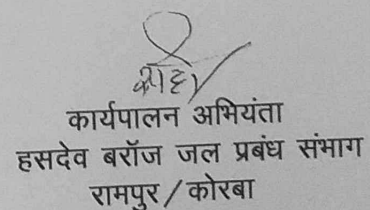 कार्यपालन अभियंता
हसदेव बरॉज जल प्रबंध संभाग
रामपुर/कोरबा